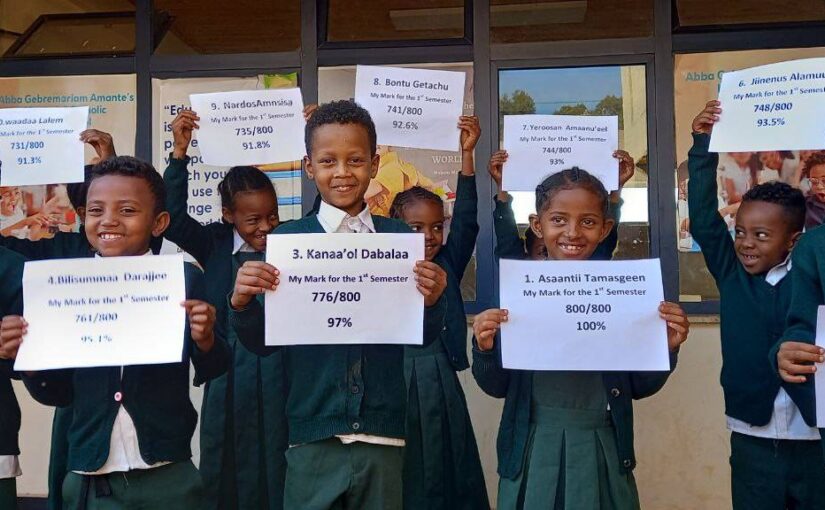 Abba Gebremariam Amante's
olic
"Edu
is
pro
use
nge
WORLD
Abba Ge
waadaa Lalem
731/800
91.3%
9. NardosAmnsisa
My Mark for the 1st Semester
735/800
91.8%
8. Bontu Getachu
My Mark for the 1st Semester
741/800
92.6%
7. Yeroosan Amaanu'eel
My Mark for the 1st Semester
744/800
93%
6. Jiinenus Alamu
My Mark for the 1st Semester
748/800
93.5%
4. Bilisummaa Darajjee
My Mark for the 1st Semester
761/800
95.1%
3. Kanaa'ol Dabalaa
My Mark for the 1st Semester
776/800
97%
1. Asaantii Tamasgeen
My Mark for the 1st Semester
800/800
100%